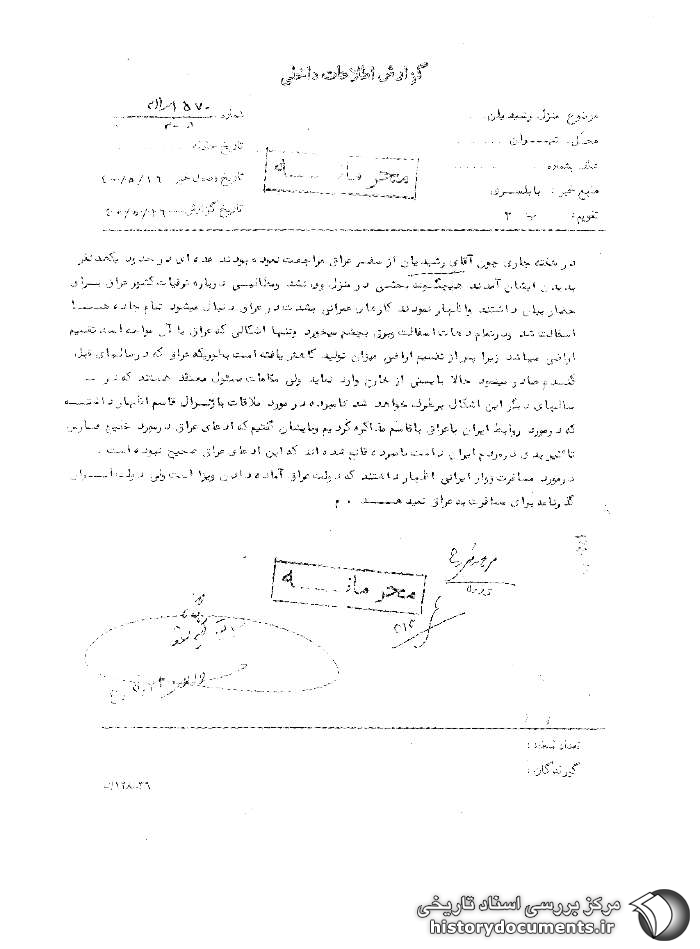 گزارش اطلاعات داخلی
موضوع منزل رشیدیان
شماره ۵۷۰
محل تهـــران
تاریخ حادثه
عطف بشماره
محرمانـــه
منبع خبر : بابلسری
تاریخ وصول خبر ۴۰/۵/۱۶
تقویم : ب ۲
تاریخ گزارش ۴۰/۵/۱۶
در هفته جاری چون آقای رشیدیان از سفر عراق مراجعت نموده بودند عده ای در حدود یکصد نفر
بدیدن ایشان آمدند هیچگونه بحثی در منزل وی نشد ومطالبی درباره ترقیات کشور عراق بـرای
حضار بیان داشتند واظهار نمودند کارهای عمرانی بشدت در عراق دنبال میشود تمام جاده هــا
اسفالت شده ودرتمام دهات اسفالت وبرق بچشم میخورد وتنها اشکالی که عراق با آن مواجه است تقسیم
اراضی میباشد زیرا پس از تقسیم اراضی میزان تولید کاهش یافته است بطوریکه عراق که در سالهای قبل
گندم صادر مینمود حالا بایستی از خارج وارد نماید ولی مقامات مسئول معتقد هستند که در
سالهای دیگر این اشکال برطرف خواهد شد نامبرده در مورد ملاقات با ژنرال قاسم اظهار داشتـه
که درمورد روابط ایران باعراق باقاسم مذاکره کردیم وبایشان گفتیم که ادعای عراق درمورد خلیج فارس
تاثیر بدی درمردم ایران داشت نامبرده قانع شده اند که این ادعای عراق صحیح نبوده است .
درمورد مسافرت زوار ایرانی اظهار داشتند که دولت عراق آماده دادن ویزا است ولی دولت ایـران
گذرنامه برای مسافرت به عراق نمیدهـــد . م
محرمانـــه
۳۱۲
تعداد نسخه :
گیرندگان :
۱۲۸-۳۶
مرکز بررسی اسناد تاریخی
historydocuments.ir